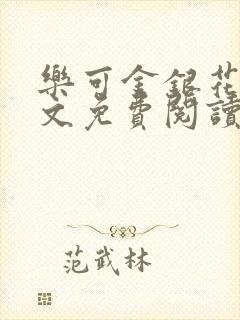 樂可金銀花
文免費閱讀
范武林